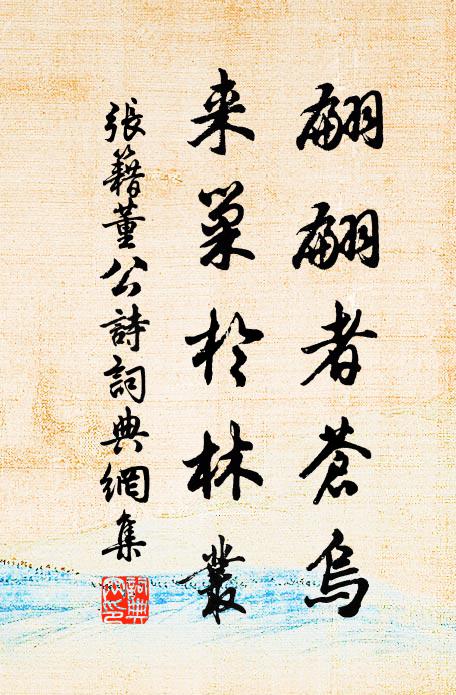 翩翩者蒼烏
来巢於林叢
張籍董公詩詞典網集